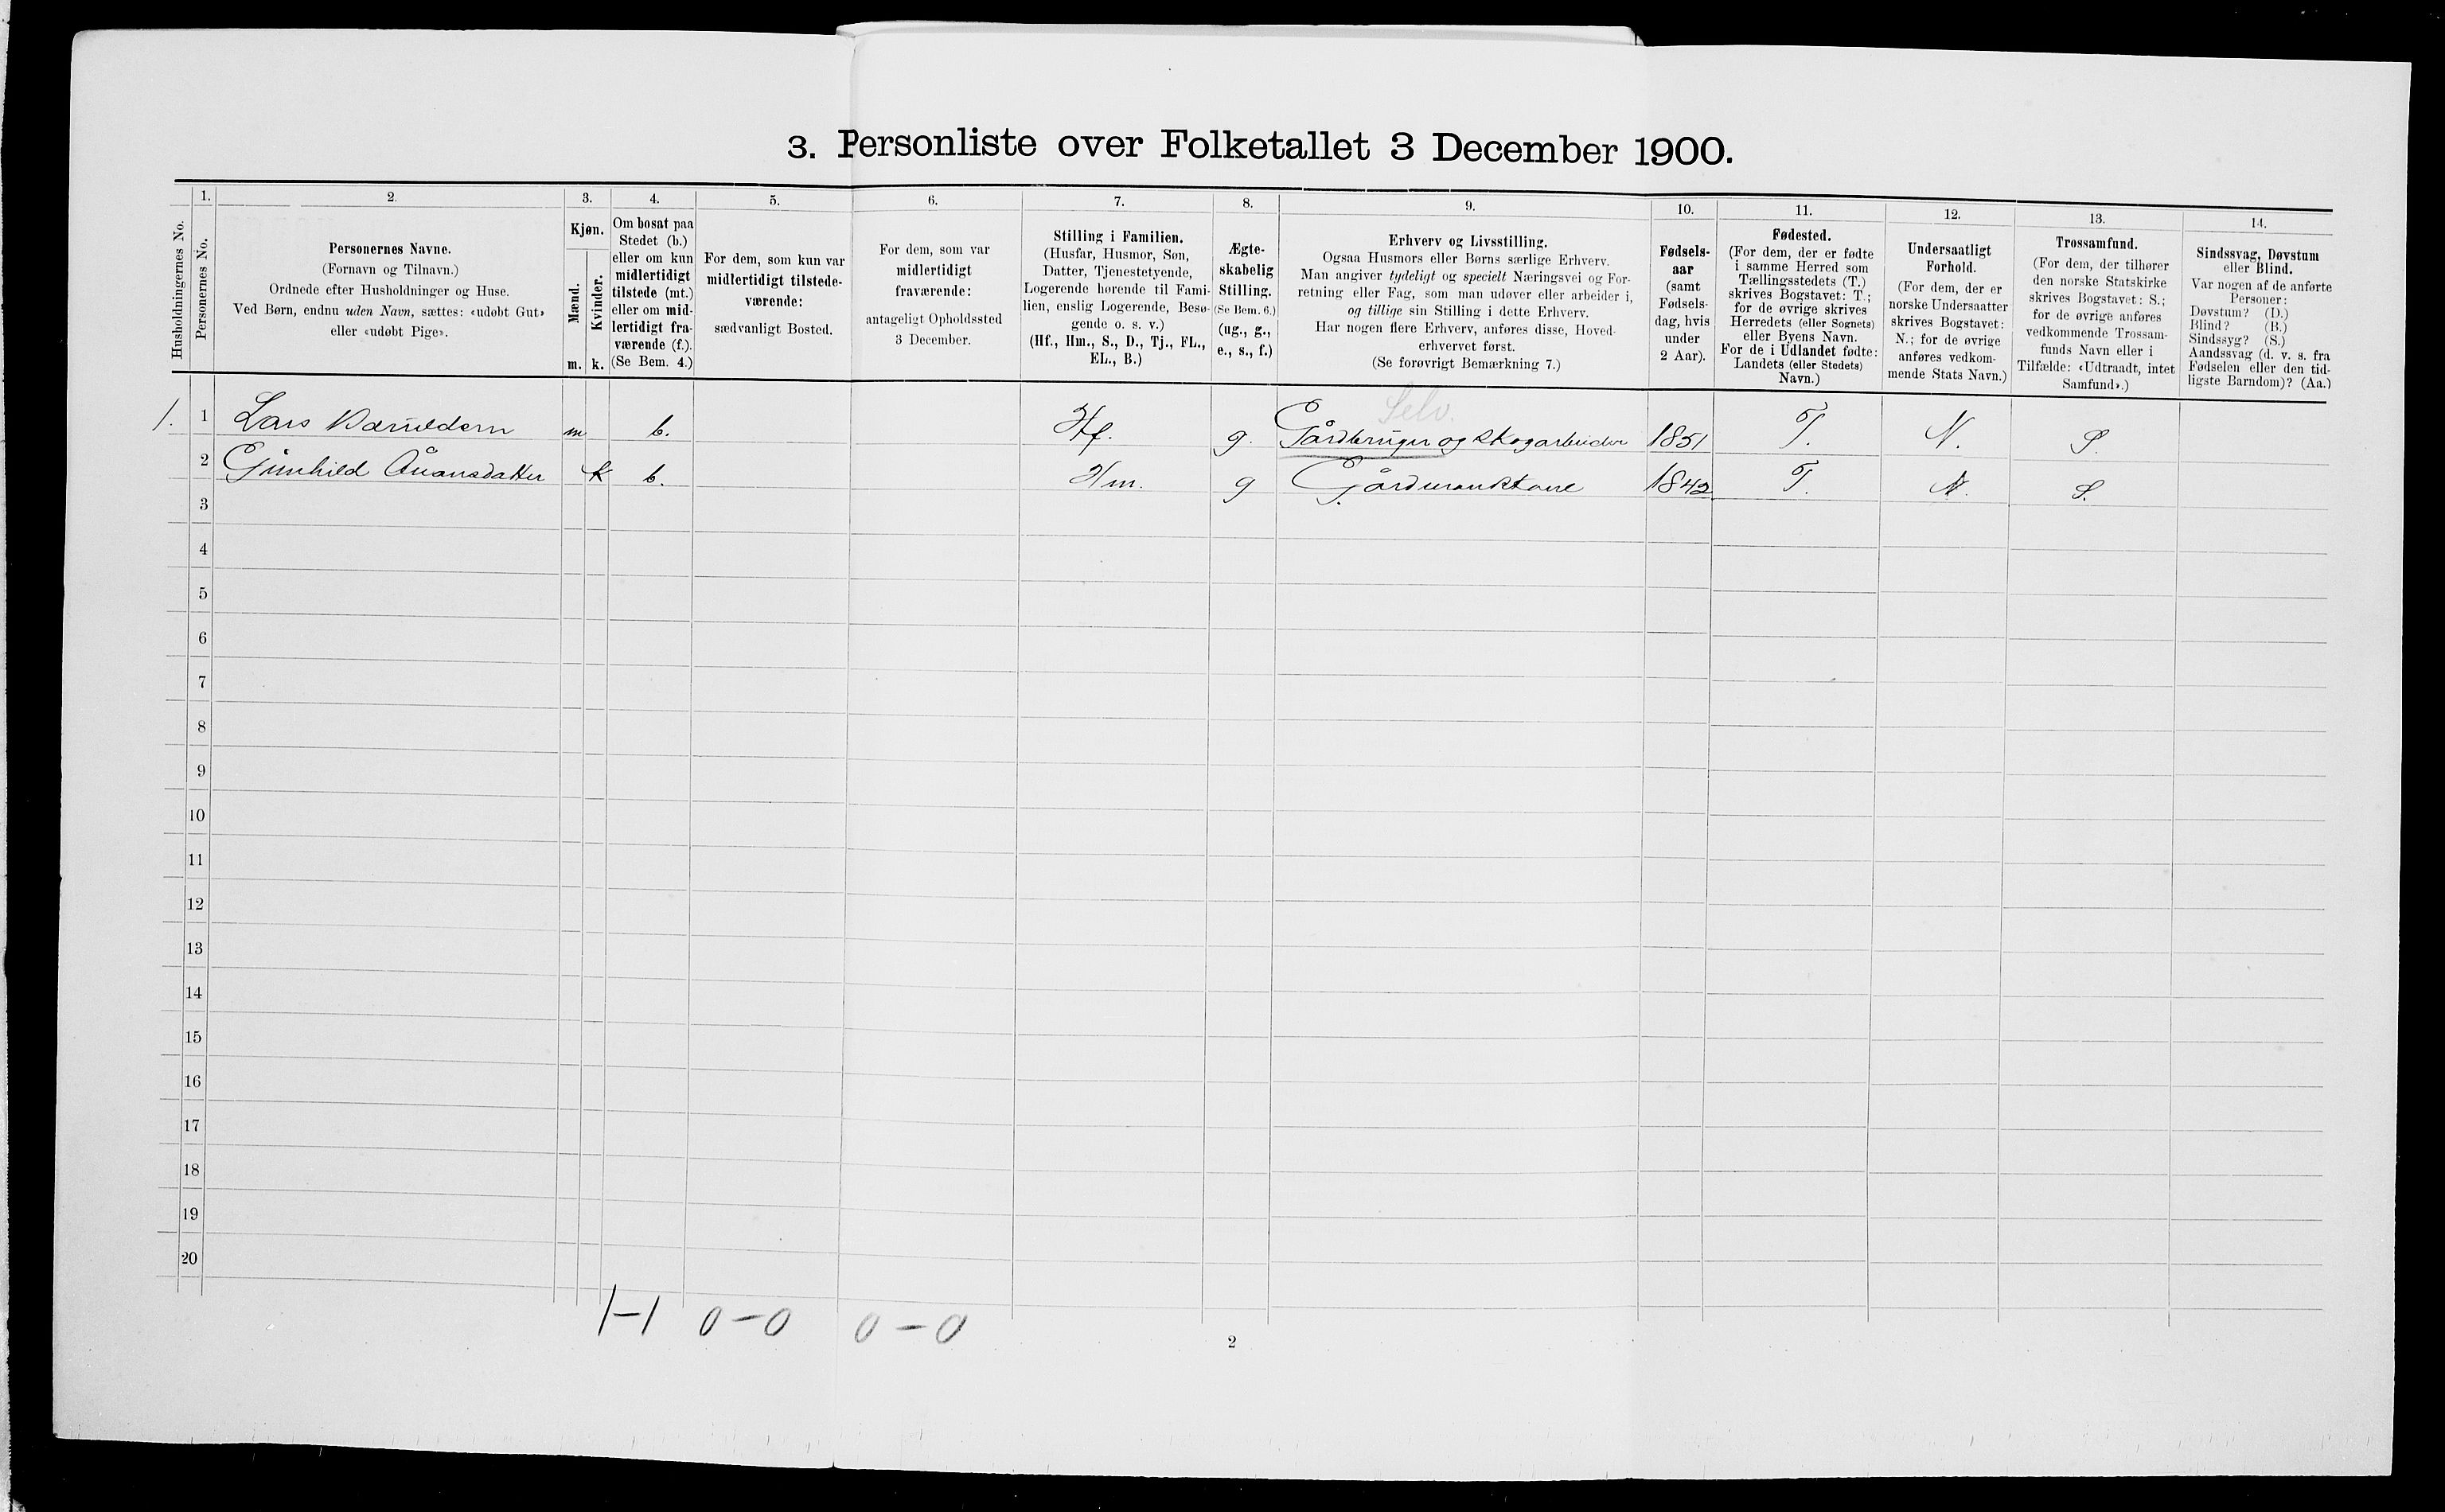 3. Personliste over Folketallet 3 December 1900.
1. 2. 3. 4. 5. 6. 7. 8. 9. 10. 11. 12. 13. 14.
Husholdningernes No.
Personernes No.
Personernes Navne.
(Fornavn og Tilnavn.)
Ordnede efter Husholdninger og Huse.
Ved Børn, endnu uden Navn, sættes: «udøbt Gut»
eller «udøbt Pige».
Kjøn.
Mænd.
Kvinder.
m. k.
Om bosat paa
Stedet (b.)
eller om kun
midlertidigt
tilstede (mt.)
eller om mid-
lertidigt fra-
værende (f.).
(Se Bem. 4.)
For dem, som kun var
midlertidigt tilstede-
værende:
sædvanligt Bosted.
For dem, som var
midlertidigt
fraværende:
antageligt Opholdssted
3 December.
Stilling i Familien.
(Husfar, Husmor, Søn,
Datter, Tjenestetyende,
Logerende hørende til Fami-
lien, enslig Logerende, Besø-
gende o. s. v.)
(Hf., Hm., S., D., Tj., FL.,
EL., B.)
Ægte-
skabelig
Stilling.
(Se Bem. 6.)
(ug., g.,
e., s., f.)
Erhverv og Livsstilling.
Ogsaa Husmors eller Børns særlige Erhverv.
Man angiver tydeligt og specielt Næringsvei og For-
retning eller Fag, som man udøver eller arbeider i,
og tillige sin Stilling i dette Erhverv.
Har nogen flere Erhverv, anføres disse, Hoved-
erhvervet først.
(Se forøvrigt Bemærkning 7.)
Fødsels-
aar
(samt
Fødsels-
dag, hvis
under
2 Aar).
Fødested.
(For dem, der er fødte
i samme Herred som
Tællingsstedets (T.)
skrives Bogstavet: T.;
for de øvrige skrives
Herredets (eller Sognets)
eller Byens Navn.
For de i Udlandet fødte:
Landets (eller Stedets)
Navn.)
Undersaatligt
Forhold.
(For dem, der er
norske Undersaatter
skrives Bogstavet:
N.; for de øvrige
anføres vedkom-
mende Stats Navn.)
Trossamfund.
(For dem, der tilhører
den norske Statskirke
skrives Bogstavet: S.;
for de øvrige anføres
vedkommende Trossam-
funds Navn eller i
Tilfælde: «Udtraadt, intet
Samfund».)
Sindssvag, Døvstum
eller Blind.
Var nogen af de anførte
Personer:
Døvstum? (D.)
Blind? (B.)
Sindssyg? (S.)
Aandssvag (d. v. s. fra
Fødselen eller den tid-
ligste Barndom)? (Aa.)
Selv.
1. 1 Lars m b. Hf. g. Gårdbruger og skogarbeider 1851 T. N. S.
2 Gunhild k b. Hm. g 1842 T. N. S.
3
4
5
6
7
8
9
10
11
12
13
14
15
16
17
18
19
20
1-1 0-0 0-0
2